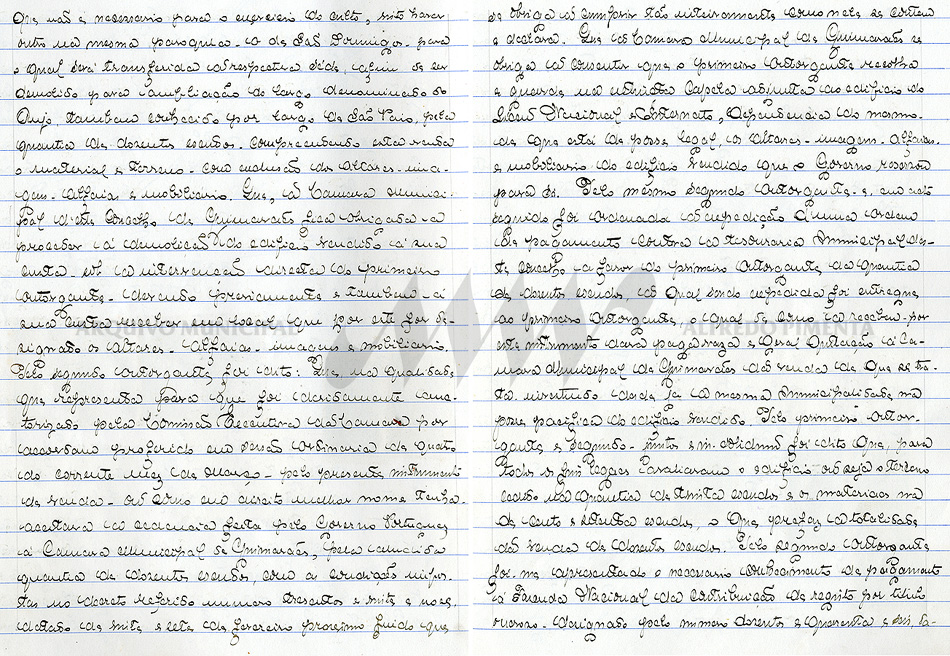 que não é necessario para o exercicio do culto, visto haver
outra na mesma paroquia - a de São Domingos - para
o qual será transferida a respectiva séde, afim de ser
demolido para ampliação do largo denominado do
Anjo, tambem conhecido por largo de São Paio, pela
quantia de duzentos escudos, compreendendo esta venda
o material e terreno - com exclusão dos altares - ima-
gens - alfaias e mobiliario. Que, a Camara Munici-
pal deste Concelho de Guimarães fica obrigada - a
proceder á demolição do edificio vendido á sua
custa - sob a intervenção directa do primeiro
outorgante - devendo previamente e tambem - á
sua custa recolher no local que por este for de-
signado os altares - alfaias - imagens e mobiliario.
Pelo segundo outorgante foi dito: Que, na qualidade
que representa para o que foi devidamente auto-
torizado pela Comissão Executiva da Camara por
accordam proferido em sessão ordinaria de quatro
do corrente mez de Março - pelo presente instrumento
de venda - ou como em direito melhor nome tenha -
aceitava a cedencia feita pelo Governo Portuguez
á Camara Municipal de Guimarães, pela aludida
quantia de duzentos escudos, com as condições impos-
tas no decreto referido numero trezentos e trinta e nove,
datado de vinte e sete de Fevereiro proximo findo que
se obriga a cumprir tão inteiramente como nele se contem
e declara. Que a Camara Municipal de Guimarães se
obriga a consentir que o primeiro outorgante recolha
e guarde na extinta Capela adjunta ao edificio do
Liceu Nacional e Internato, dependencia do mesmo -
de que está de posse legal, os altares - imagens - alfaias -
e mobiliario do edificio vendido que o Governo reservou
para si. Pelo mesmo segundo outorgante - e, em acto
seguido foi ordenada a expedição d'uma ordem
de pagamento contra a tesouraria Municipal des-
te concelho a favor do primeiro outorgante da quantia
de duzentos escudos, a qual sendo expedida foi entregue
ao primeiro outorgante, o qual de como a recebeu - por
este instrumento dava paga raza e geral quitação á Ca-
mara Municipal de Guimarães da venda de que se tra-
ta, investindo desde já a mesma Municipalidade na
posse pacifica do edificio vendido. Pelo primeiro outor-
gante e segundo - juntos e in-solidum foi dito que, para
todos os fins legaes avaliavam o edificio ou seja o terreno
cedido na quantia de trinta escudos e os materiaes na
de cento e setenta escudos, o que prefaz a totalidade
da venda de duzentos escudos. Pelo segundo outorgante
foi-me apresentado o necessario conhecimento do pagamento
á Fazenda Nacional da contribuição de registo por titulo
oneroso - designado pelo numero duzentos e quarenta e seis, la-
ARQUIVO MUNICIPAL
ALFREDO PIMENTA